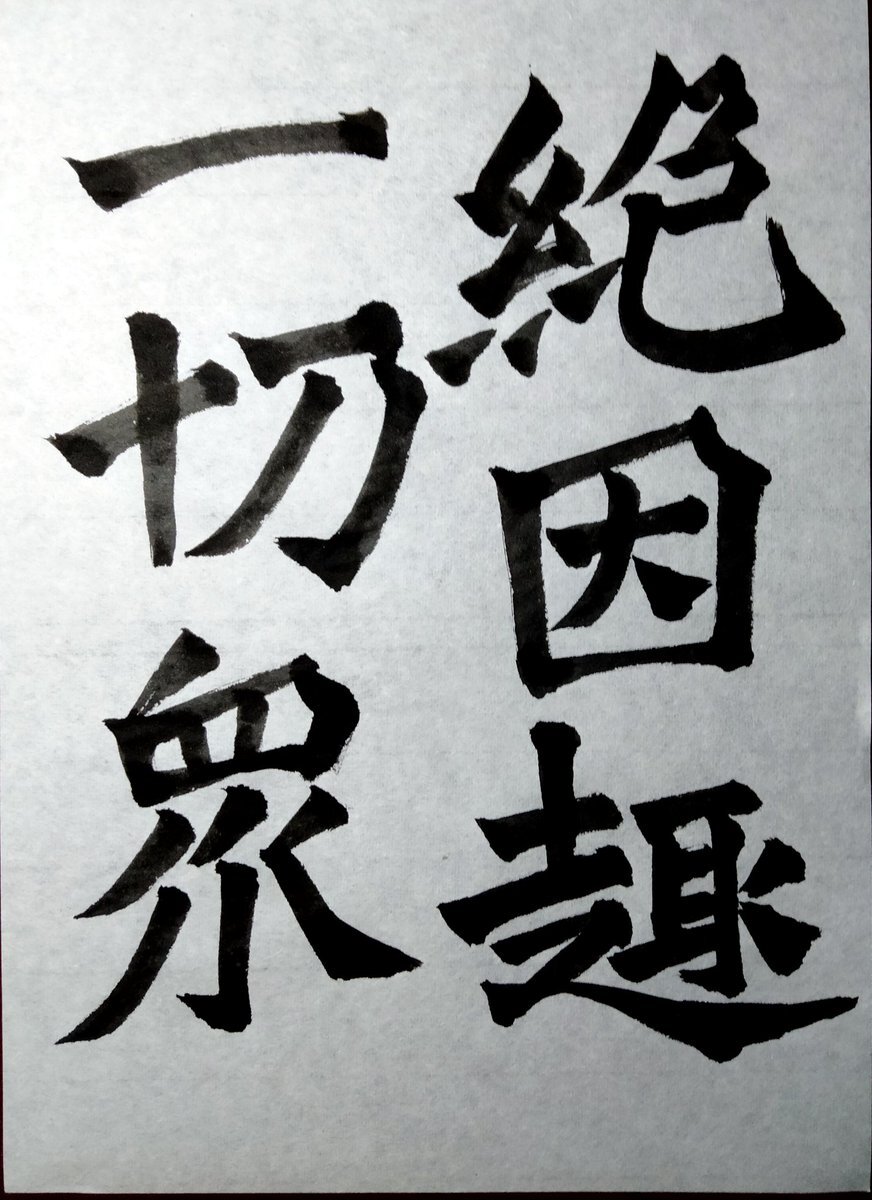 絶因趣
一切衆